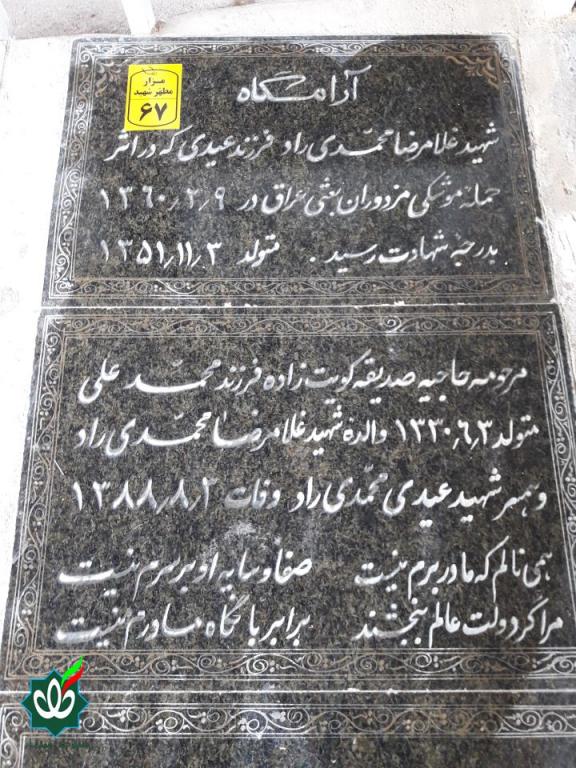 آرامگاه
مزار
مطهر شهید
۶۷
شهید غلامرضا محمّدی راد فرزند عیدی که در اثر
حمله موشکی مزدوران بعثی عراق در ۱۳۶۰٫۲٫۹
بدرجه شهادت رسید . متولد ۱۳۵۱٫۱۱٫۳
مرحومه حاجیه صدیقه کویت زاده فرزند محمد علی
متولد ۱۳۳۰٫۶٫۳ والده شهید غلامرضا محمّدی راد
و همسر شهید عیدی محمّدی راد وفات ۱۳۸۸٫۸٫۲
همی نالم که مادر برم نیست صفا و سایه او بر سرم نیست
مرا گر دولت عالم ببخشند برابر با نگاه مادرم نیست